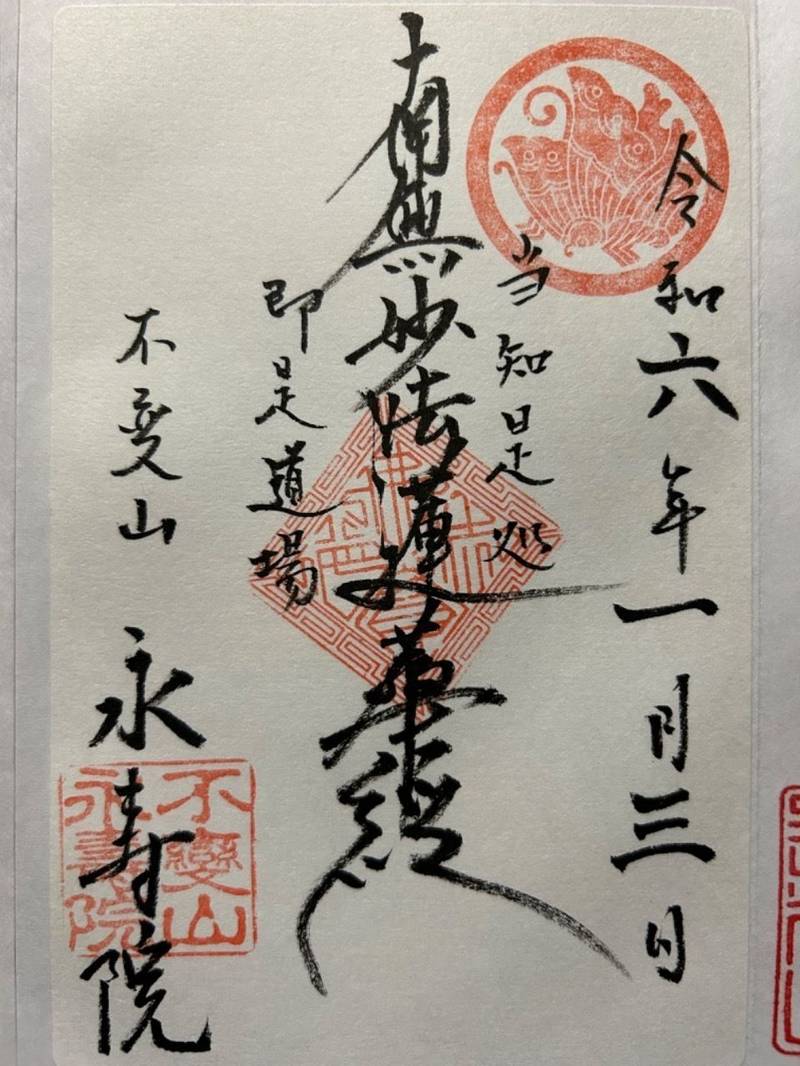 令和六年一月三日
当知是処
南無妙法蓮華経
即是道場
不変山
永寿院
不變山
永壽院